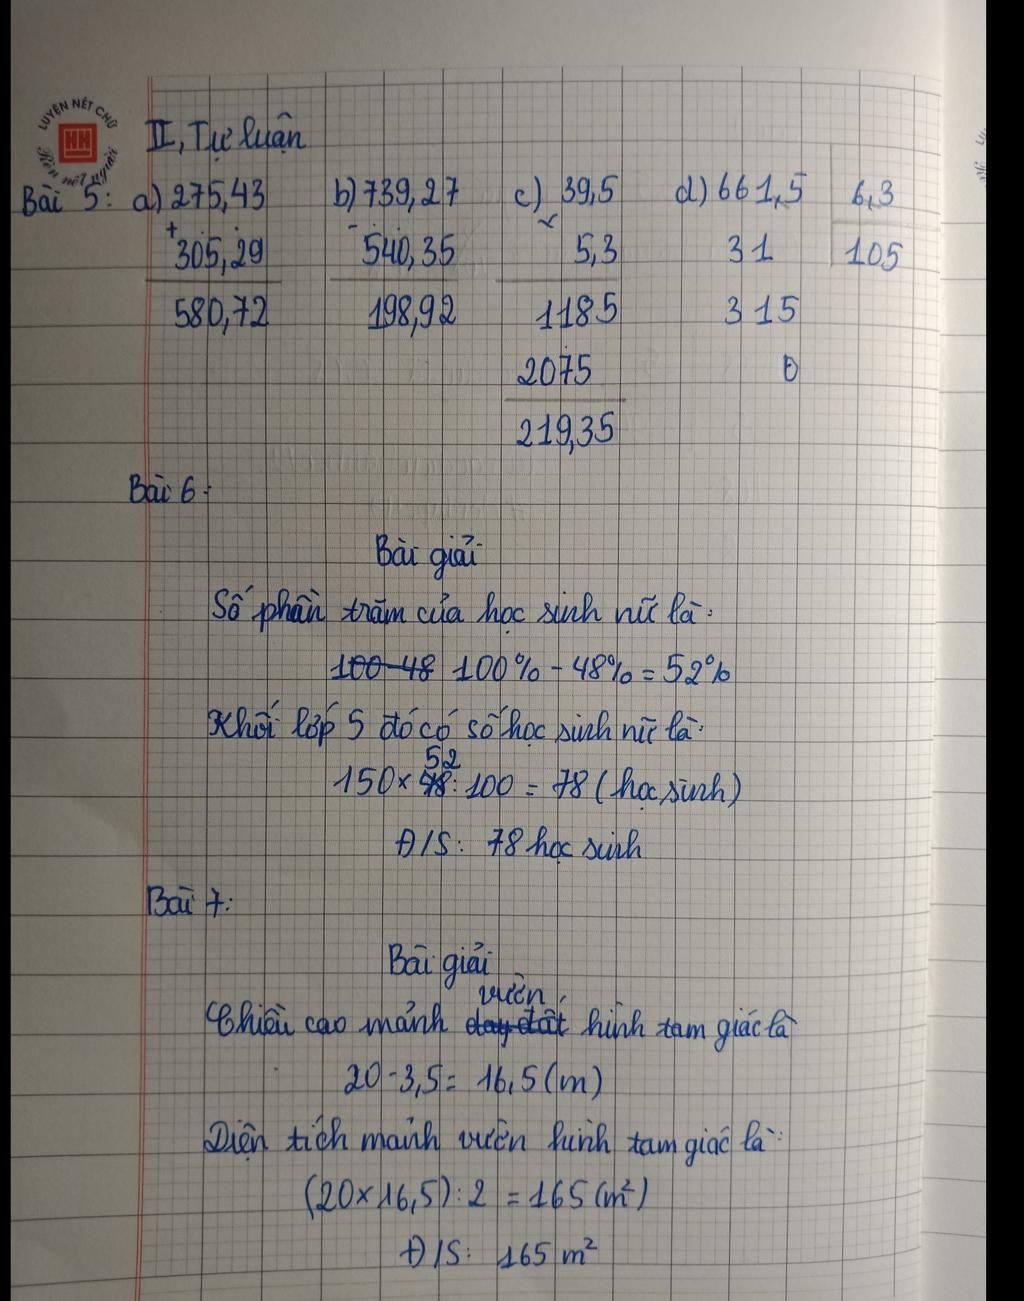 LUYỆN NÉT CHỮ
HN
Rèn nết người
II, Tự luận
Bài 5: a) 275,43 b) 739,27 c) 39,5 d) 661,5 6,3
+ 305,29 - 540,35 x 5,3 31 105
580,72 198,92 1185 315
2075 0
219,35
Bài 6:
Bài giải
Số phần trăm của học sinh nữ là:
100-48 100% - 48% = 52%
Khối lớp 5 đó có số học sinh nữ là:
52
150 x 48 : 100 = 78 (học sinh)
Đ/S: 78 học sinh
Bài 7:
Bài giải
vườn
Chiều cao mảnh đay đất hình tam giác là
20 - 3,5 = 16,5 (m)
Diện tích mảnh vườn hình tam giác là:
(20 x 16,5) : 2 = 165 (m²)
Đ/S: 165 m²